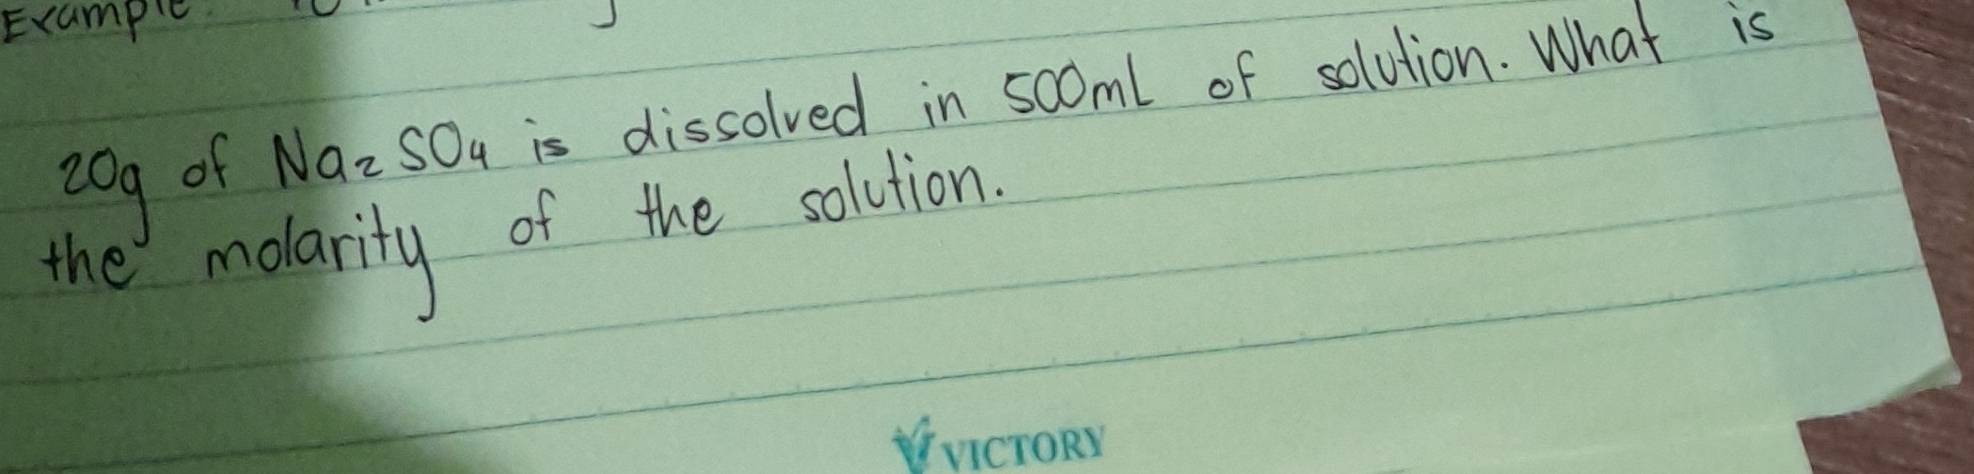 Example
20g of Na2SO4 is dissolved in 500mL of solution. What is
the molarity of the solution.
VICTORY